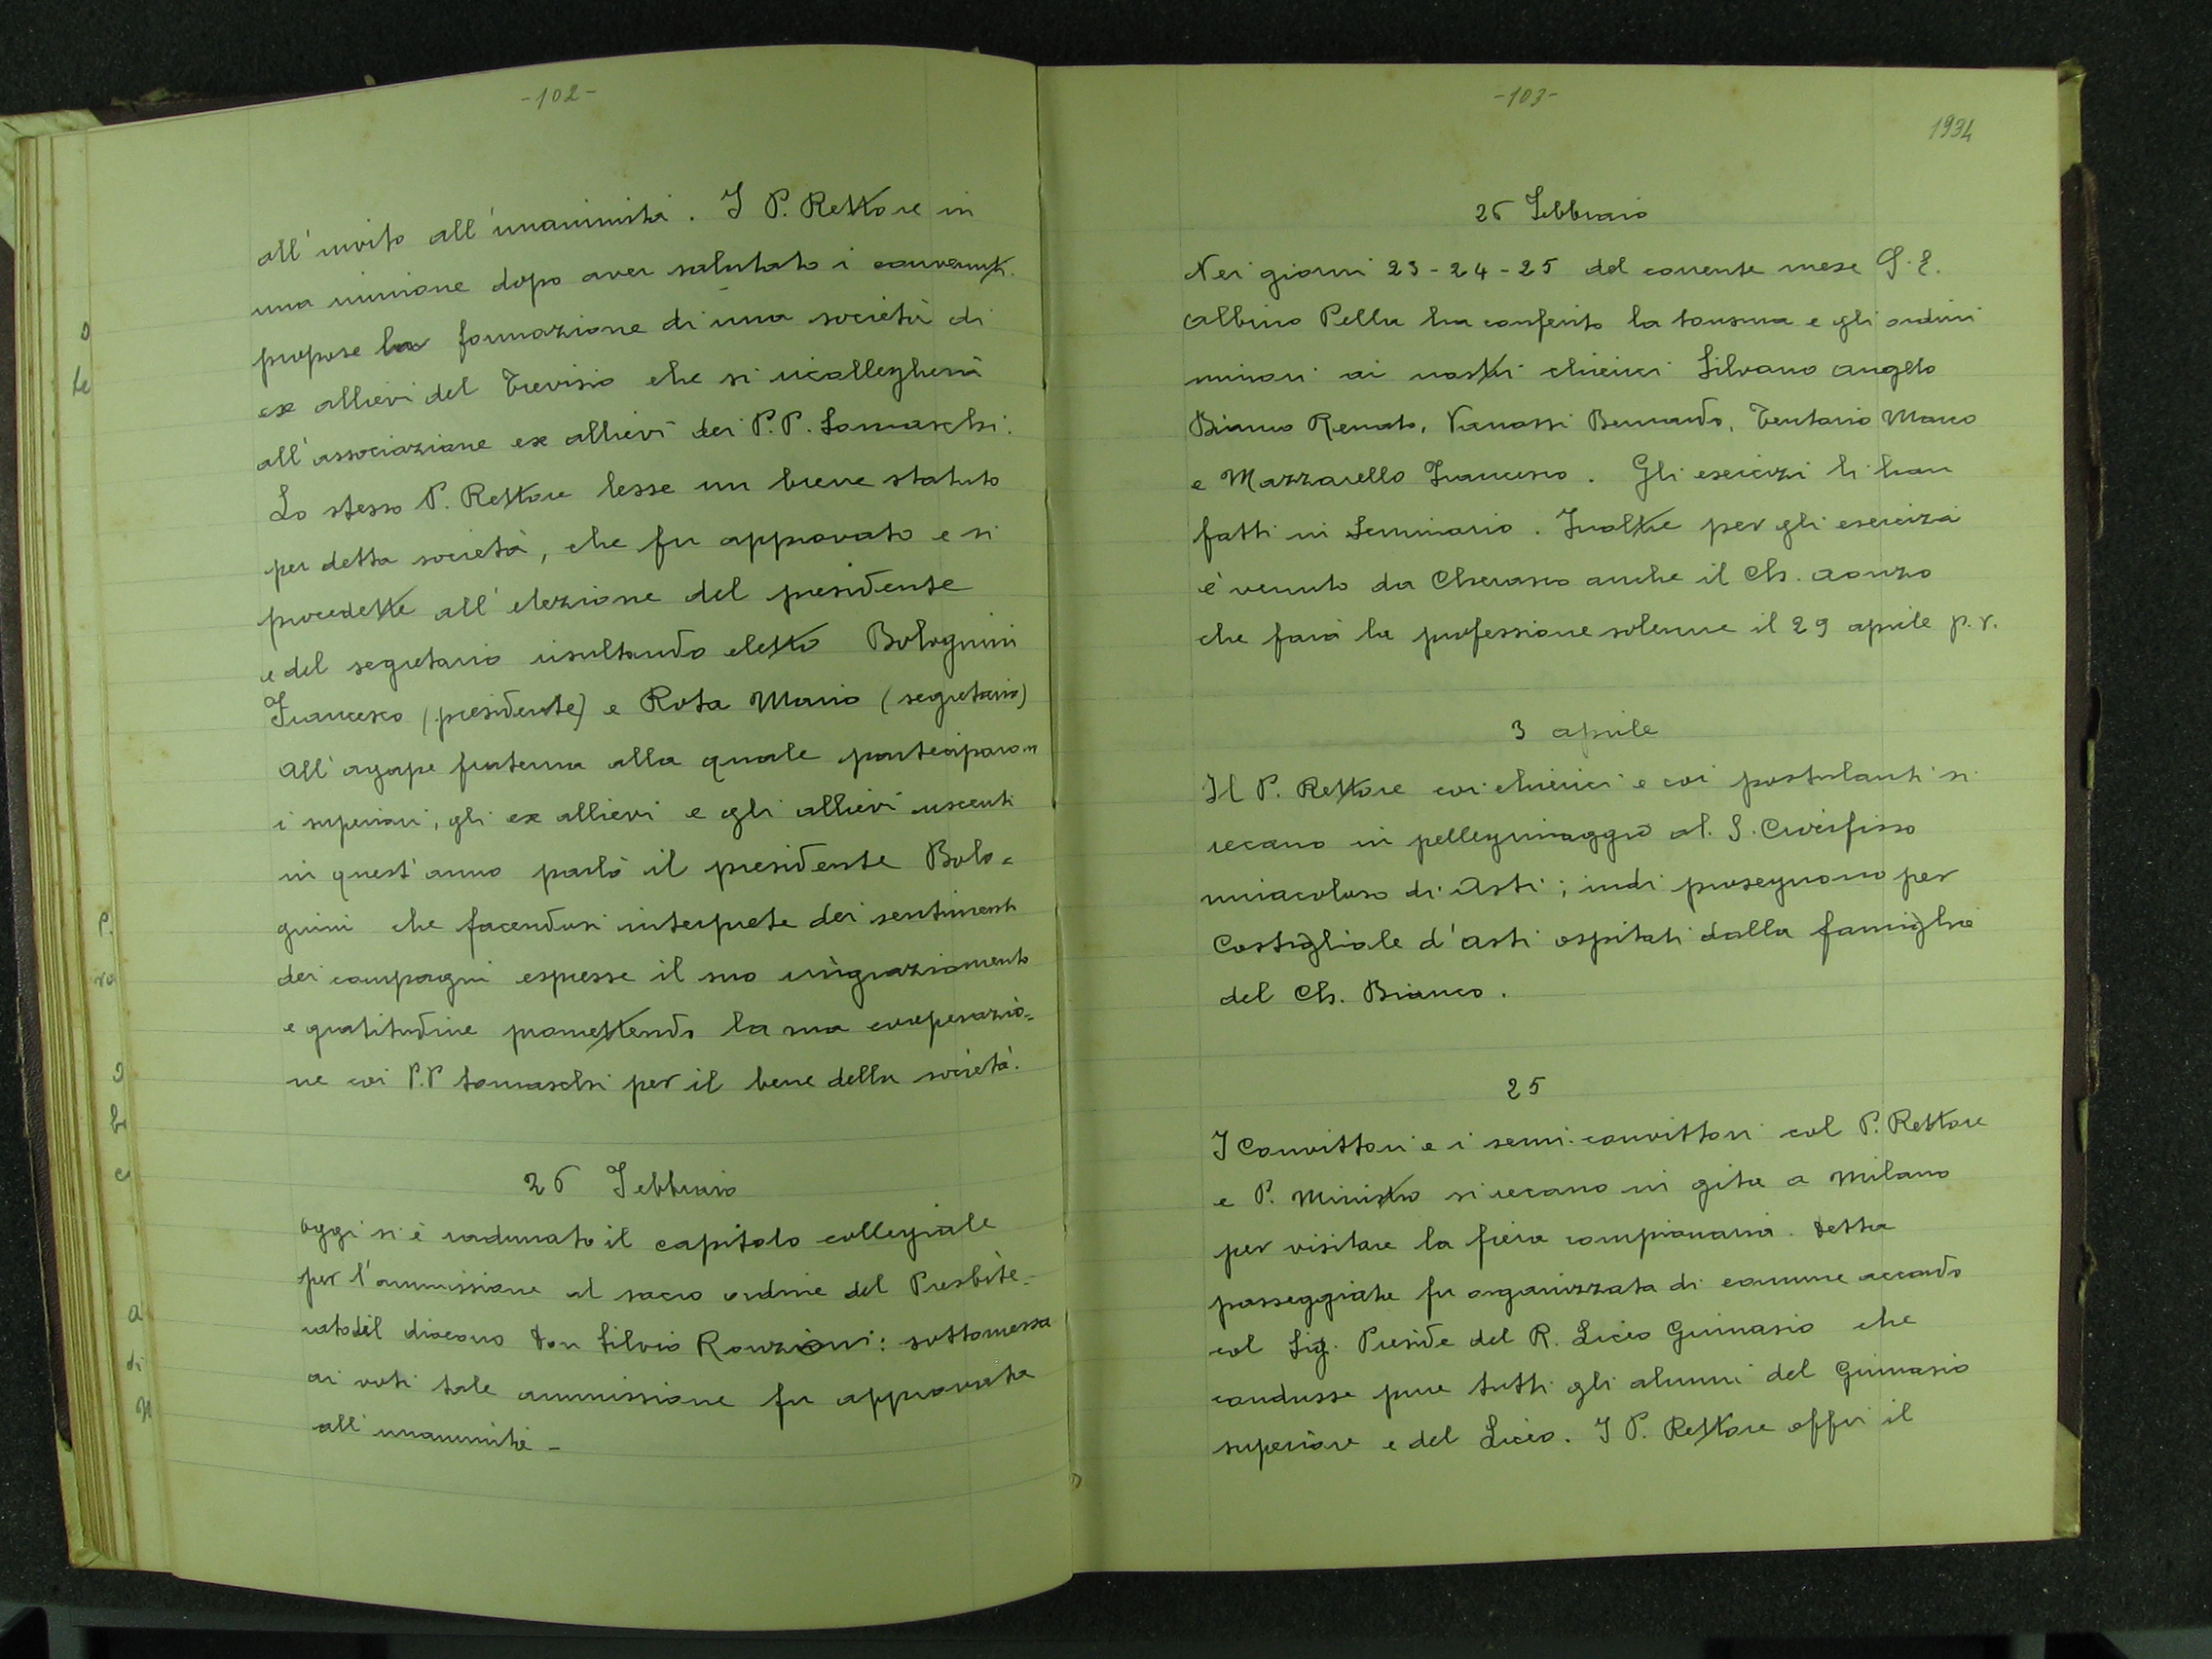 -102-
all'invito all'unanimità. I P. Rettore in
una riunione dopo aver salutato i convenuti
propose la formazione di una società di
ex allievi del Trevisio che si ricallegherà
all'associazione ex allievi dei P.P. Somaschi.
Lo stesso P. Rettore lesse un breve statuto
per detta società, che fu approvato e si
procedette all'elezione del presidente
e del segretario risultando eletto Bolognini
Francesco (presidente) e Rota Mario (segretario)
All'agape fraterna alla quale parteciparon
i superiori, gli ex allievi e gli allievi uscenti
in quest'anno parlò il presidente Bolo=
gnini che facendosi interprete dei sentimenti
dei compagni espresse il suo ringraziamento
e gratitudine promettendo la sua cooperazio=
ne coi P.P Somaschi per il bene della società.
26 Febbraio
Oggi si è radunato il capitolo collegiale
per l'ammissione al sacro ordine del Presbite-
rato del diacono Don Silvio Ronzioni: sottomessa
ai voti tale ammissione fu approvata
all'unanimità -
-103-
1934
26 Febbraio
Nei giorni 23-24-25 del corrente mese S.E.
Albino Pella ha conferito la tonsura e gli ordini
minori ai nostri chierici Silvano Angelo
Bianco Renato, Vanossi Bernardo, Tentorio Marco
e Mazzarello Francesco. Gli esercizi li han
fatti in Seminario. Inoltre per gli esercizi
è venuto da Cherasco anche il Ch. Aonzo
che farà la professione solenne il 29 aprile p.v.
3 aprile
Il P. Rettore coi chierici e coi postulanti si
recano in pellegrinaggio al S. Crocifisso
miracoloso di Asti; indi proseguono per
Costigliale d'Asti ospitati dalla famiglia
del Ch. Bianco.
25
I Convittori e i semi-convittori col P. Rettore
e P. Ministro si recano in gita a Milano
per visitare la fiera campionaria. Detta
passeggiata fu organizzata di comune accordo
col Sig. Preside del R. Liceo Ginnasio che
condusse pure tutti gli alunni del Ginnasio
superiore e del Liceo. I P. Rettore offrì il